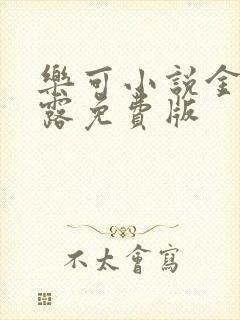 樂可小說金
露免費版
不太會寫